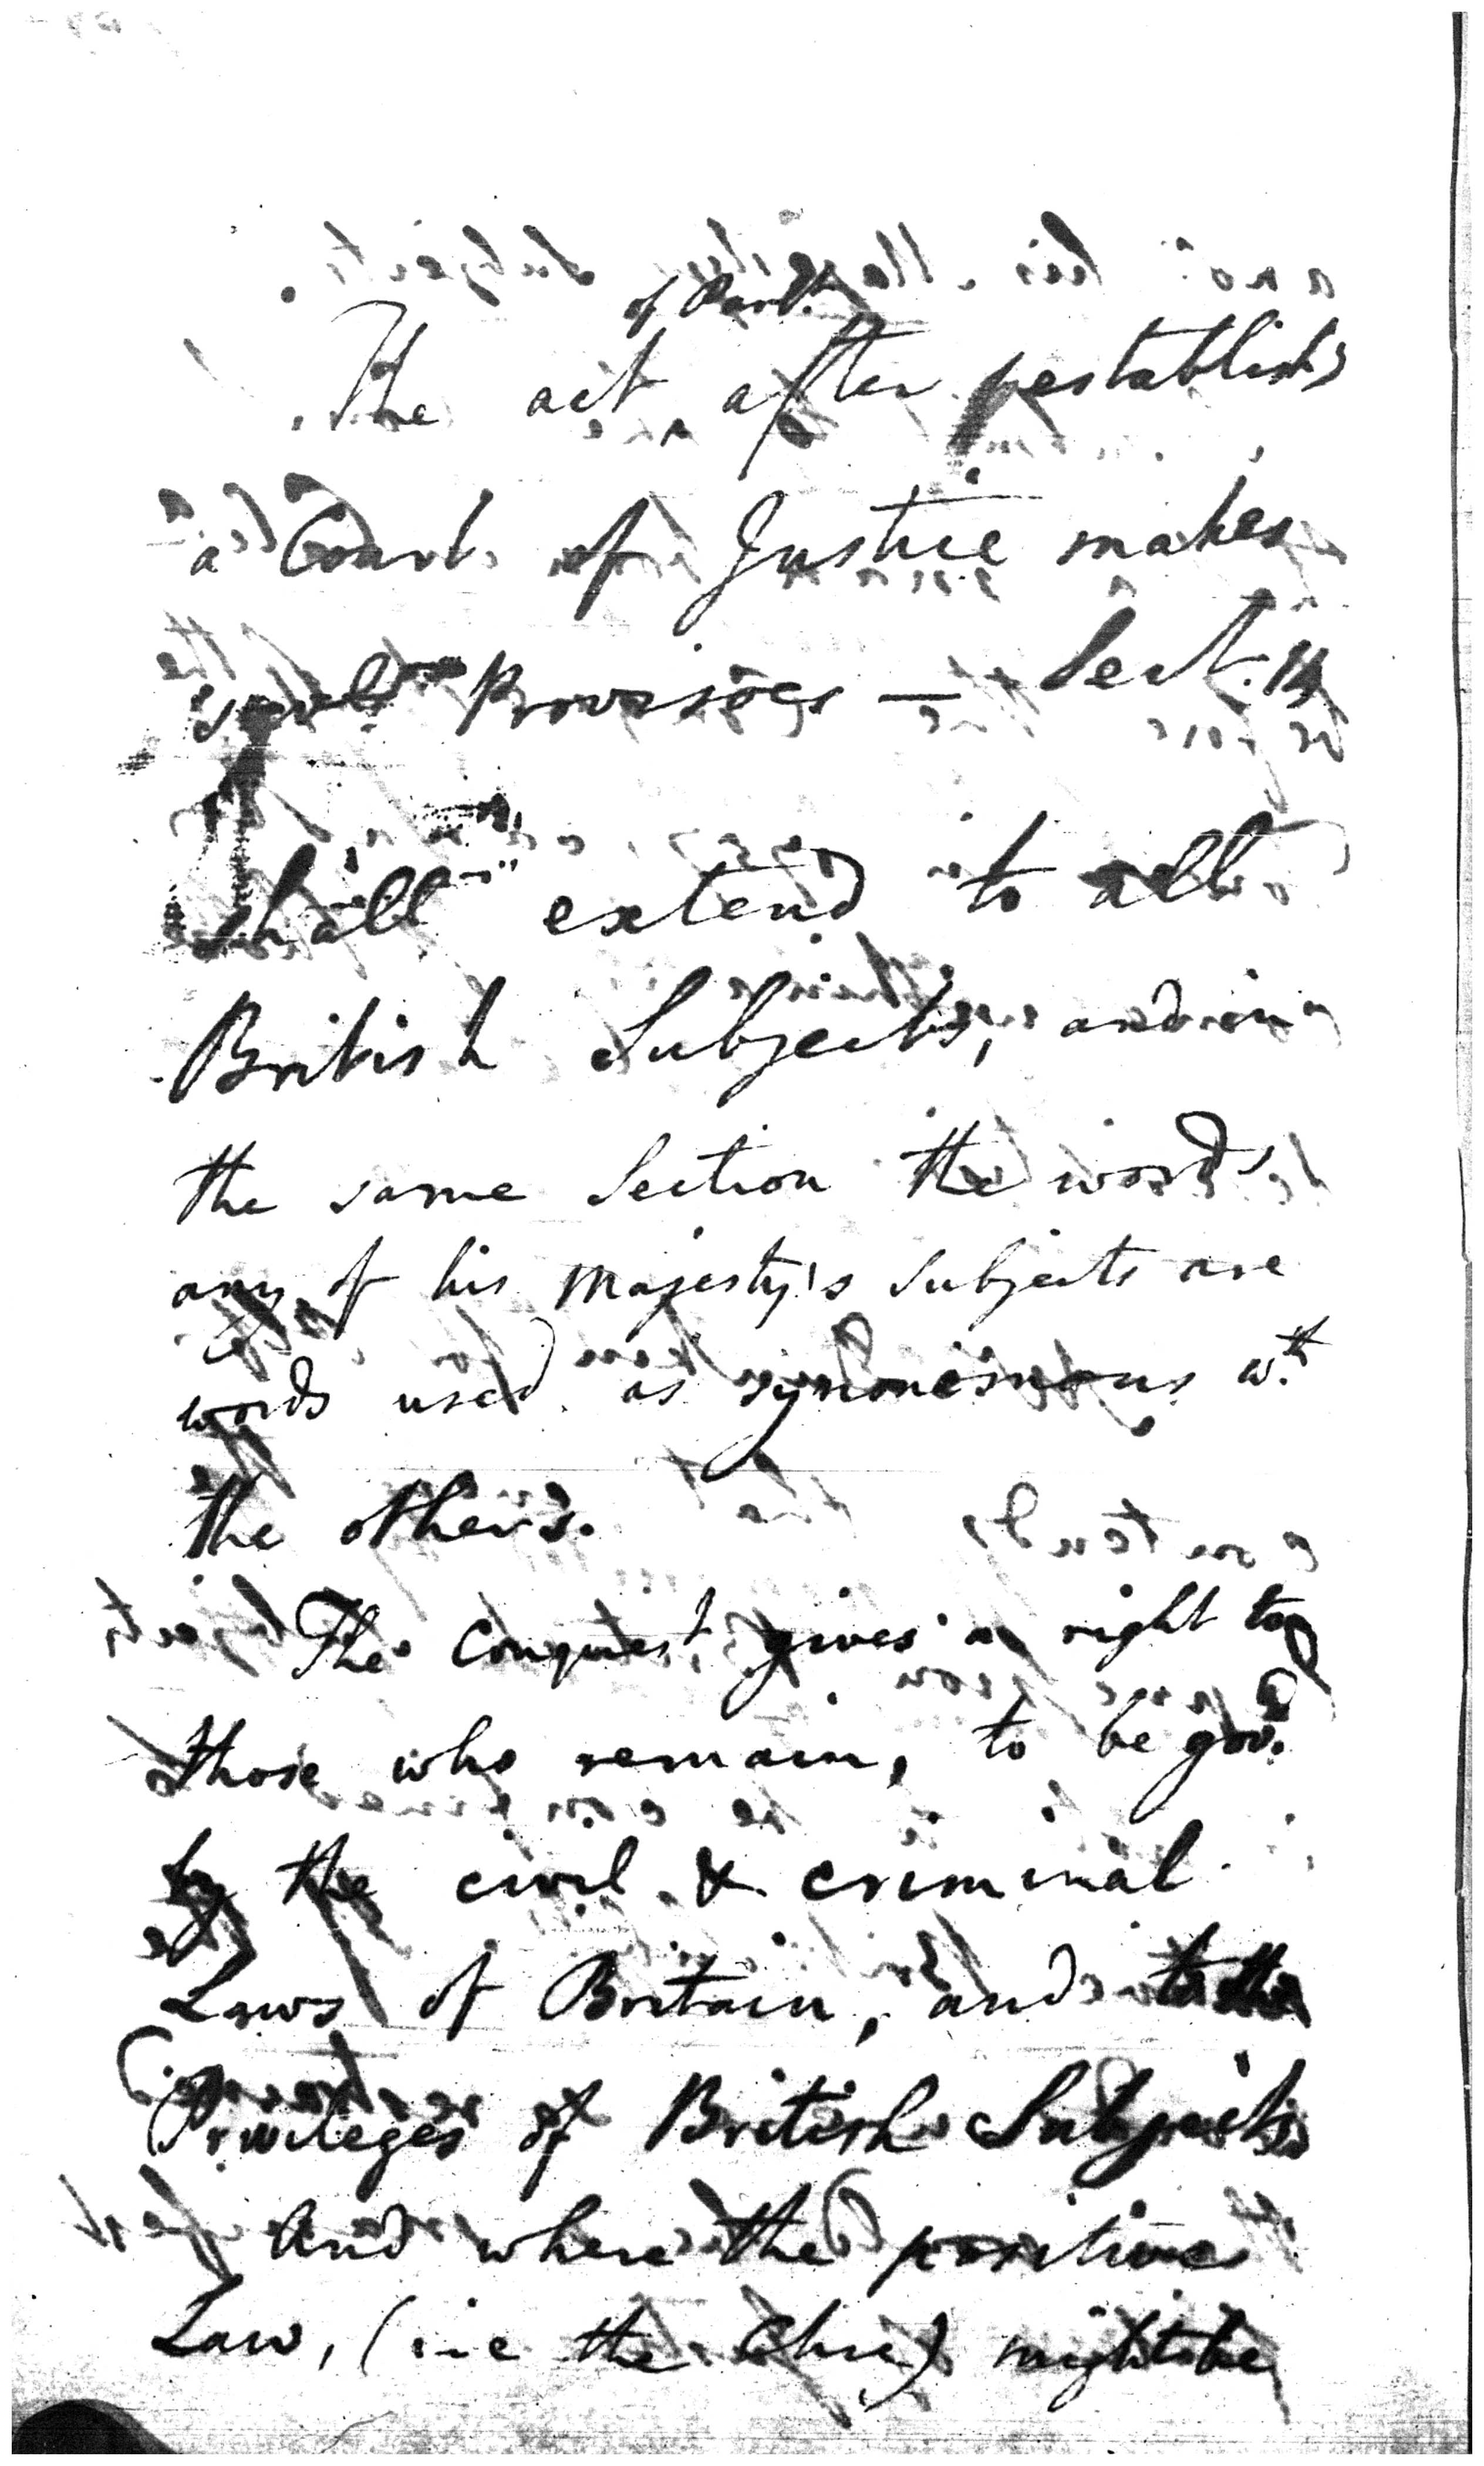 of Parlt.
The act after establish'g
a Court of Justice makes
Provisoes — Sect. 14
shall extend to all
British Subjects, and in
the same Section the words
any of his Majesty's Subjects are
words used as wth
the others.
The conquest gives a right to
those who remain, to be govd.
by the civil & criminal
Laws of Britain, and to the
Privileges of British Subjects
And where the positive
Law, (i.e the) might be